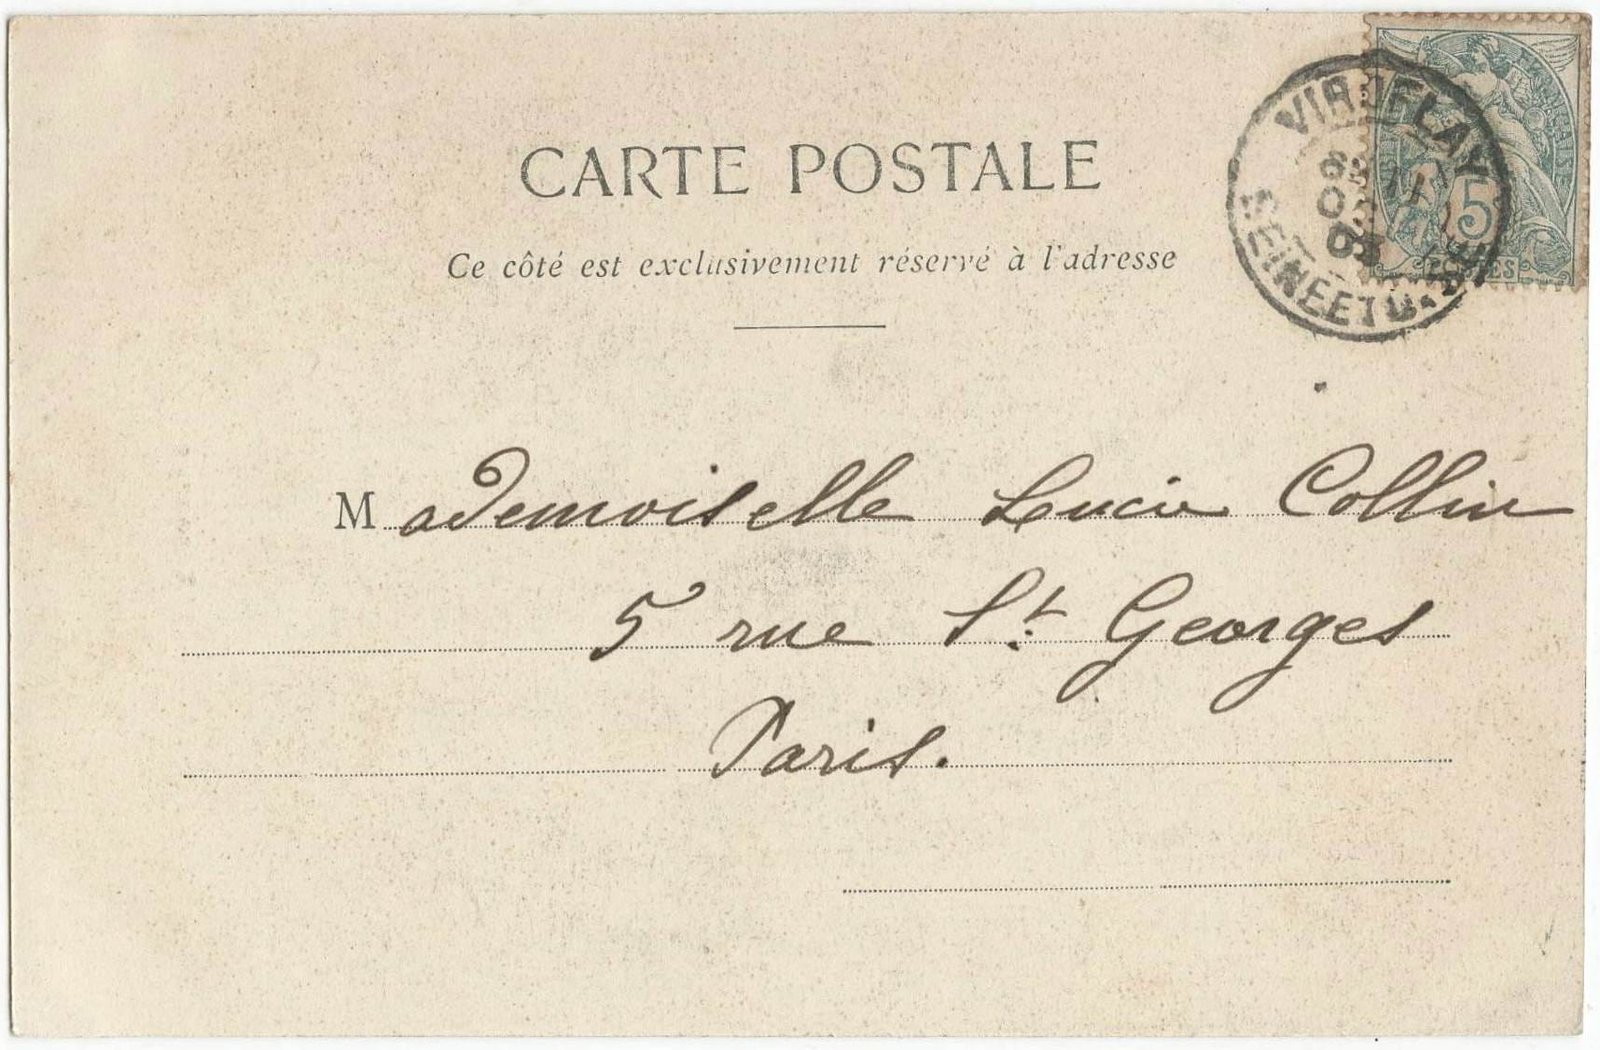 CARTE POSTALE
Ce côté est exclusivement réservé à l'adresse
VIROFLAY
03
SEINE ET O
5
POSTES
Mademoiselle Lucie Collin
5 rue St. Georges
Paris.